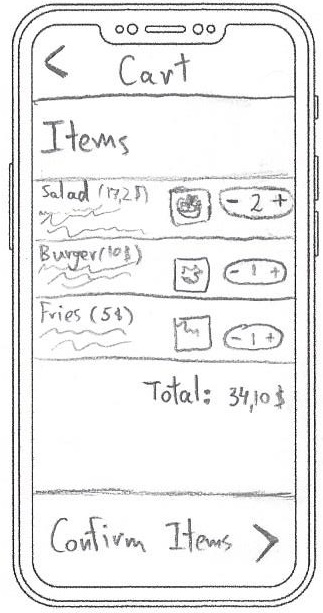 < Cart
Items
Salad (17,2$)
- 2 +
Burger (10$)
- 1 +
Fries (5$)
- 1 +
Total: 34,10$
Confirm Items >